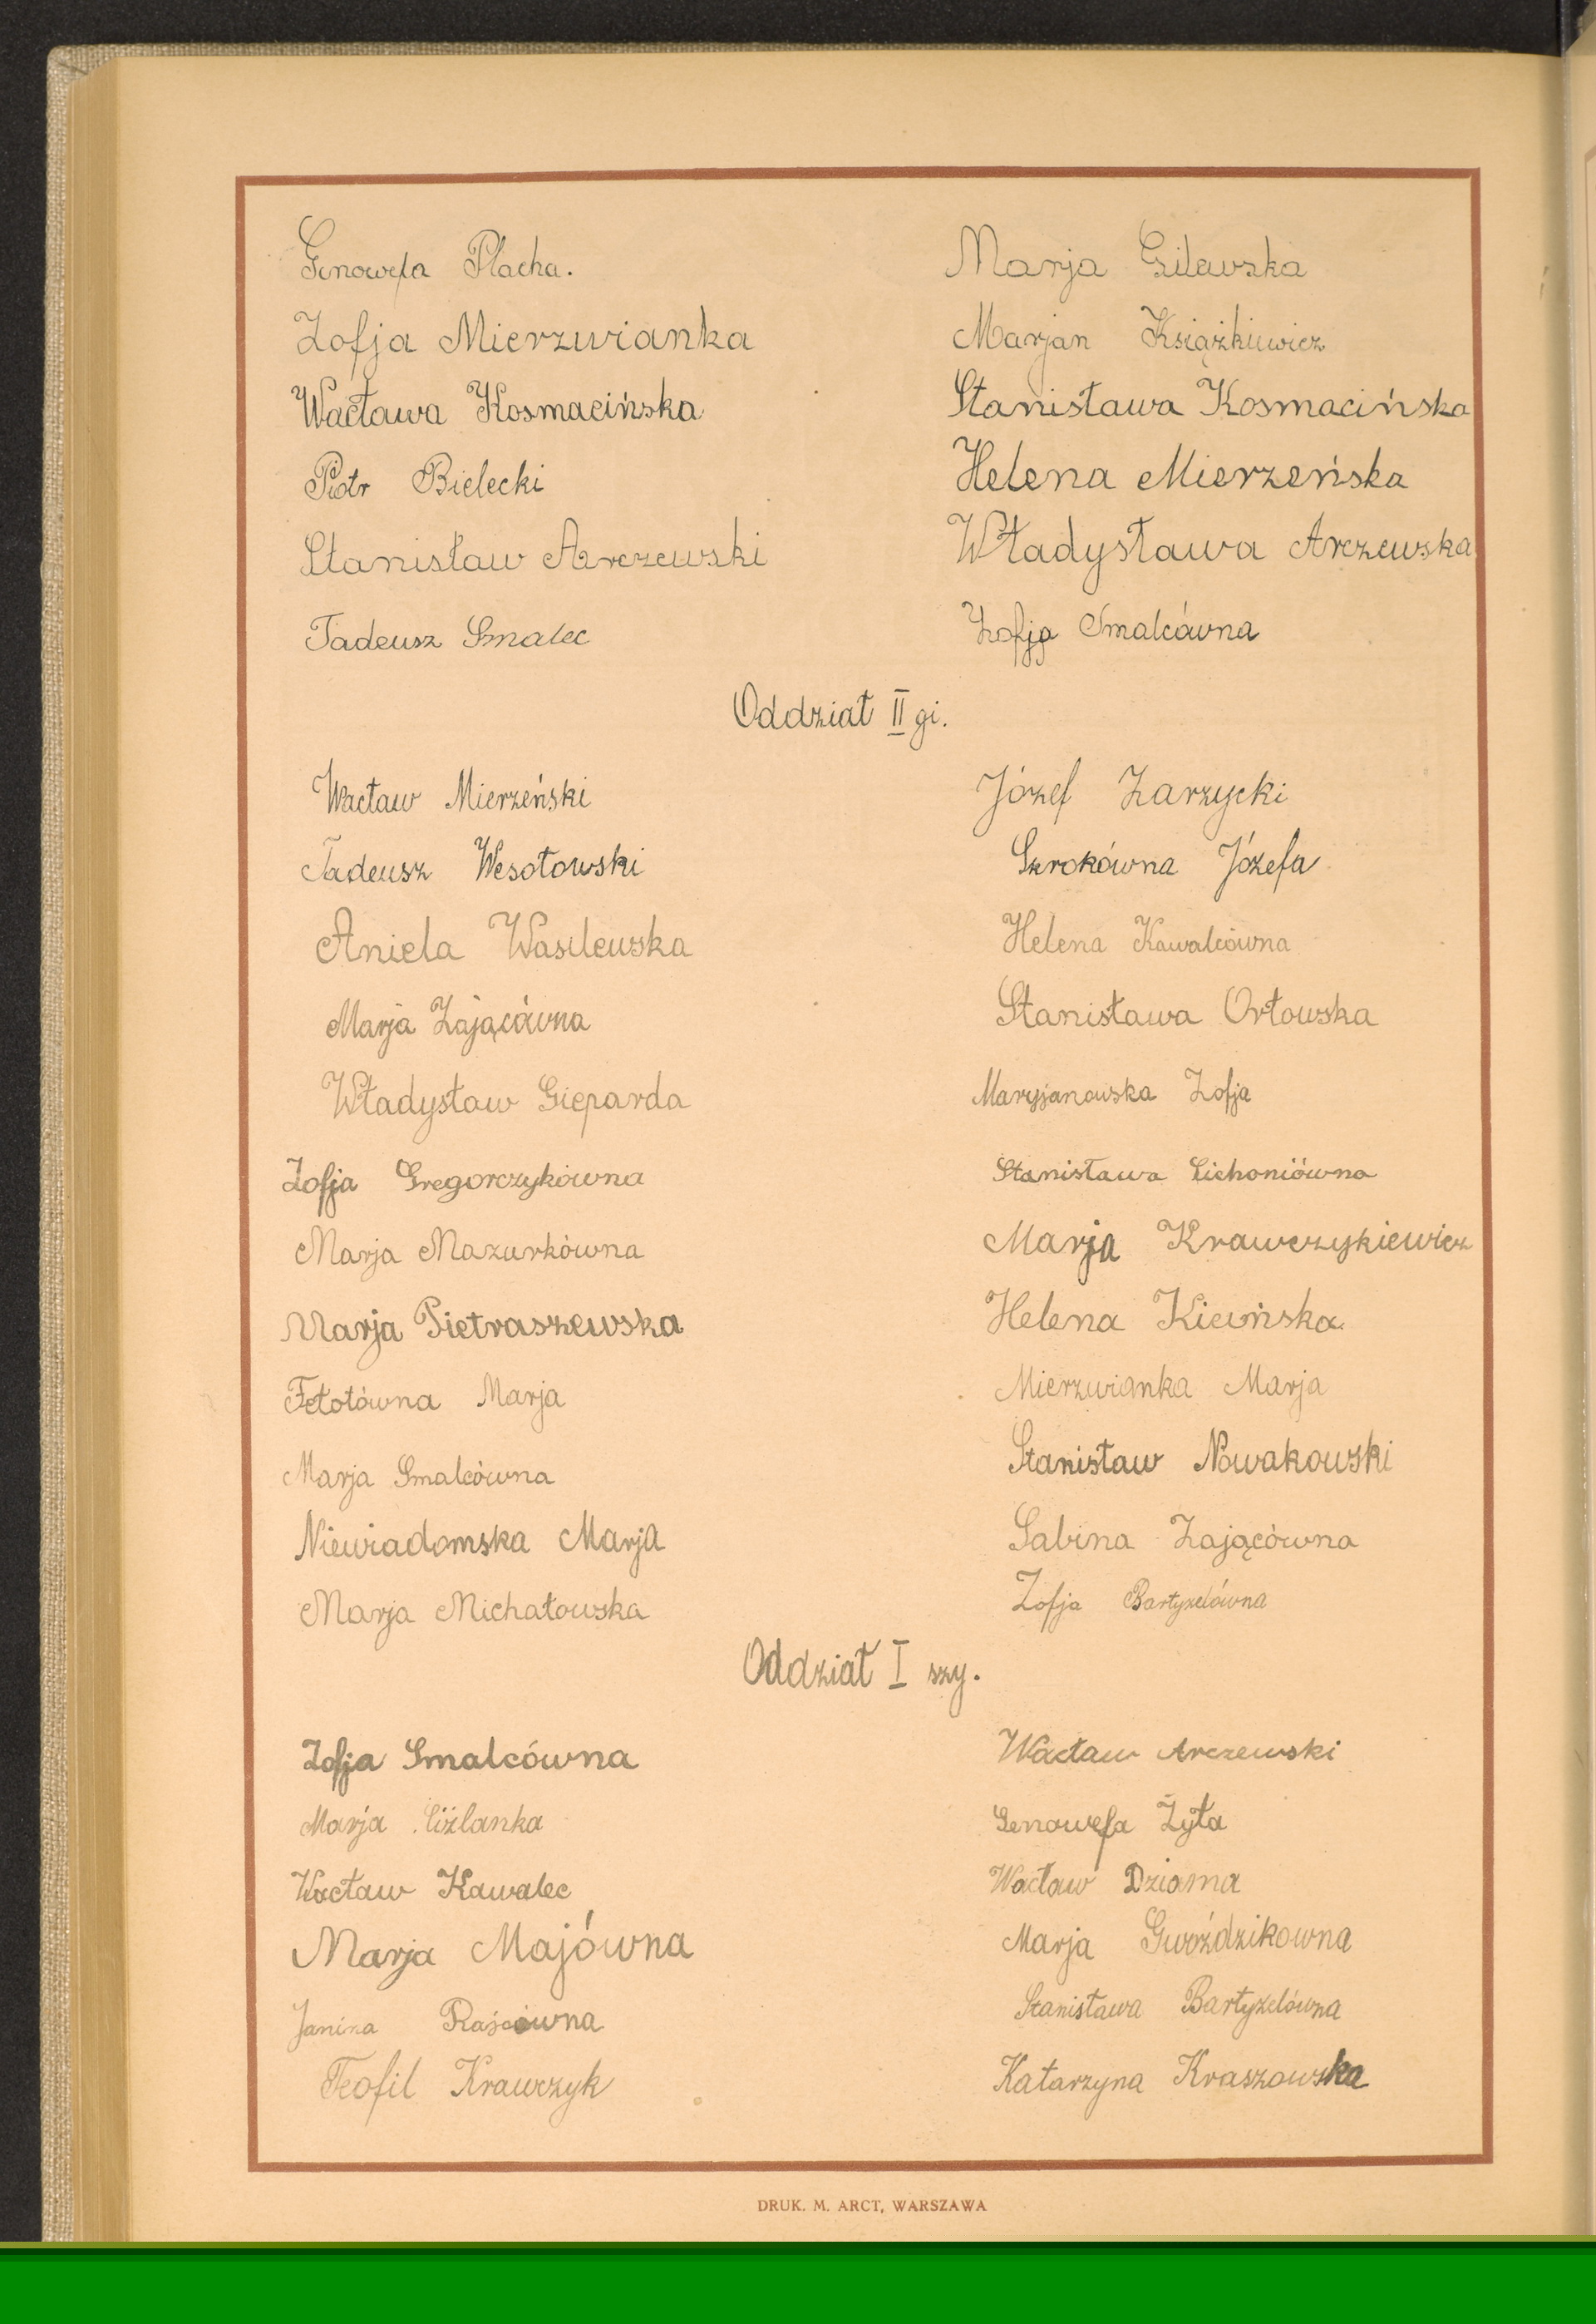 Genowefa Płacha.
Marja Gilewska
Zofja Mierzwianka
Marjan Książkiewicz
Wacława Kosmacińska
Stanisława Kosmacińska
Piotr Bielecki
Helena Mierzeńska
Stanisław Arczewski
Władysława Arczewska
Tadeusz Smalec
Zofja Smalcówna
Oddział II gi.
Wacław Mierzeński
Józef Zarzycki
Tadeusz Wesołowski
Szrokówna Józefa
Aniela Wasilewska
Helena Kawalcówna
Marja Zającówna
Stanisława Orłowska
Władysław Gieparda
Maryjanowska Zofja
Zofja Gregorczykówna
Stanisława Cichoniówna
Marja Mazurkówna
Marja Krawczykiewicz
Marja Pietraszewska
Helena Kiewińska
Fetotówna Marja
Mierzwianka Marja
Marja Smalcówna
Stanisław Nowakowski
Niewiadomska Marja
Sabina Zającówna
Marja Michałowska
Zofja Bartyzelówna
Oddział I szy.
Zofja Smalcówna
Wacław Arczewski
Marja Ciźlanka
Genowefa Żyła
Wacław Kawalec
Wacław Dziama
Marja Majówna
Marja Gwoździkowna
Janina
Stanisława Bartyzelówna
Teofil Krawczyk
Katarzyna Kraszowska
DRUK. M. ARCT, WARSZAWA